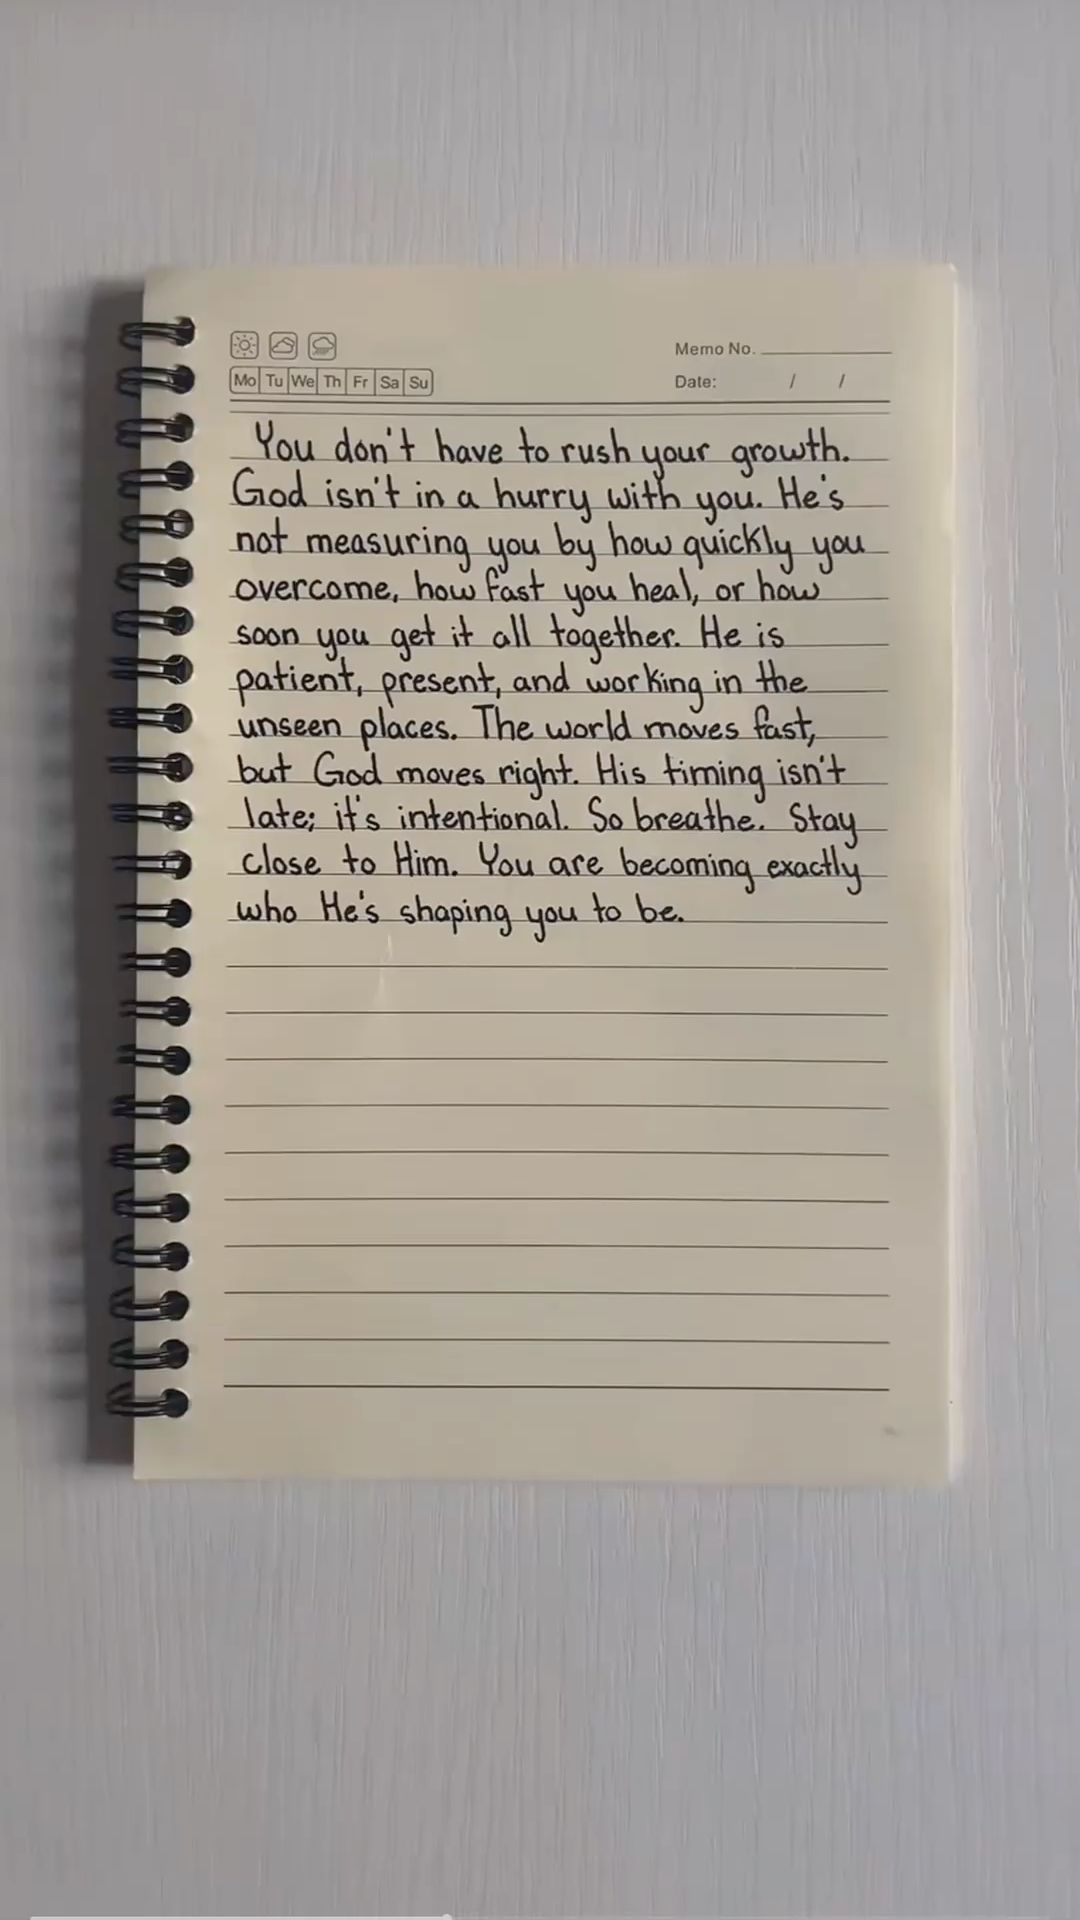 Memo No.
Mo Tu We Th Fr Sa Su
Date: / /
You don't have to rush your growth.
God isn't in a hurry with you. He's
not measuring you by how quickly you
overcome, how fast you heal, or how
soon you get it all together. He is
patient, present, and working in the
unseen places. The world moves fast,
but God moves right. His timing isn't
late; it's intentional. So breathe. Stay
close to Him. You are becoming exactly
who He's shaping you to be.